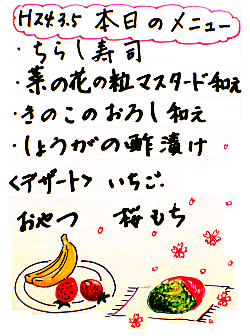 H24.3.5 本日のメニュー
・ちらし寿司
・菜の花の粒マスタード和え
・きのこのおろし和え
・しょうがの酢漬け
<デザート> いちご
おやつ 桜もち